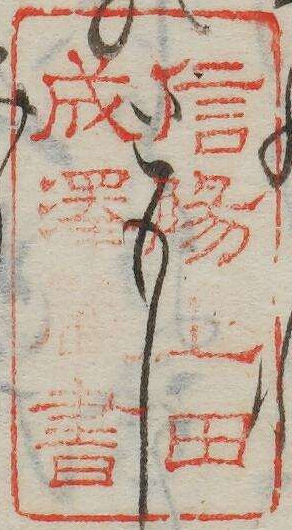 信陽上田
成澤藏書